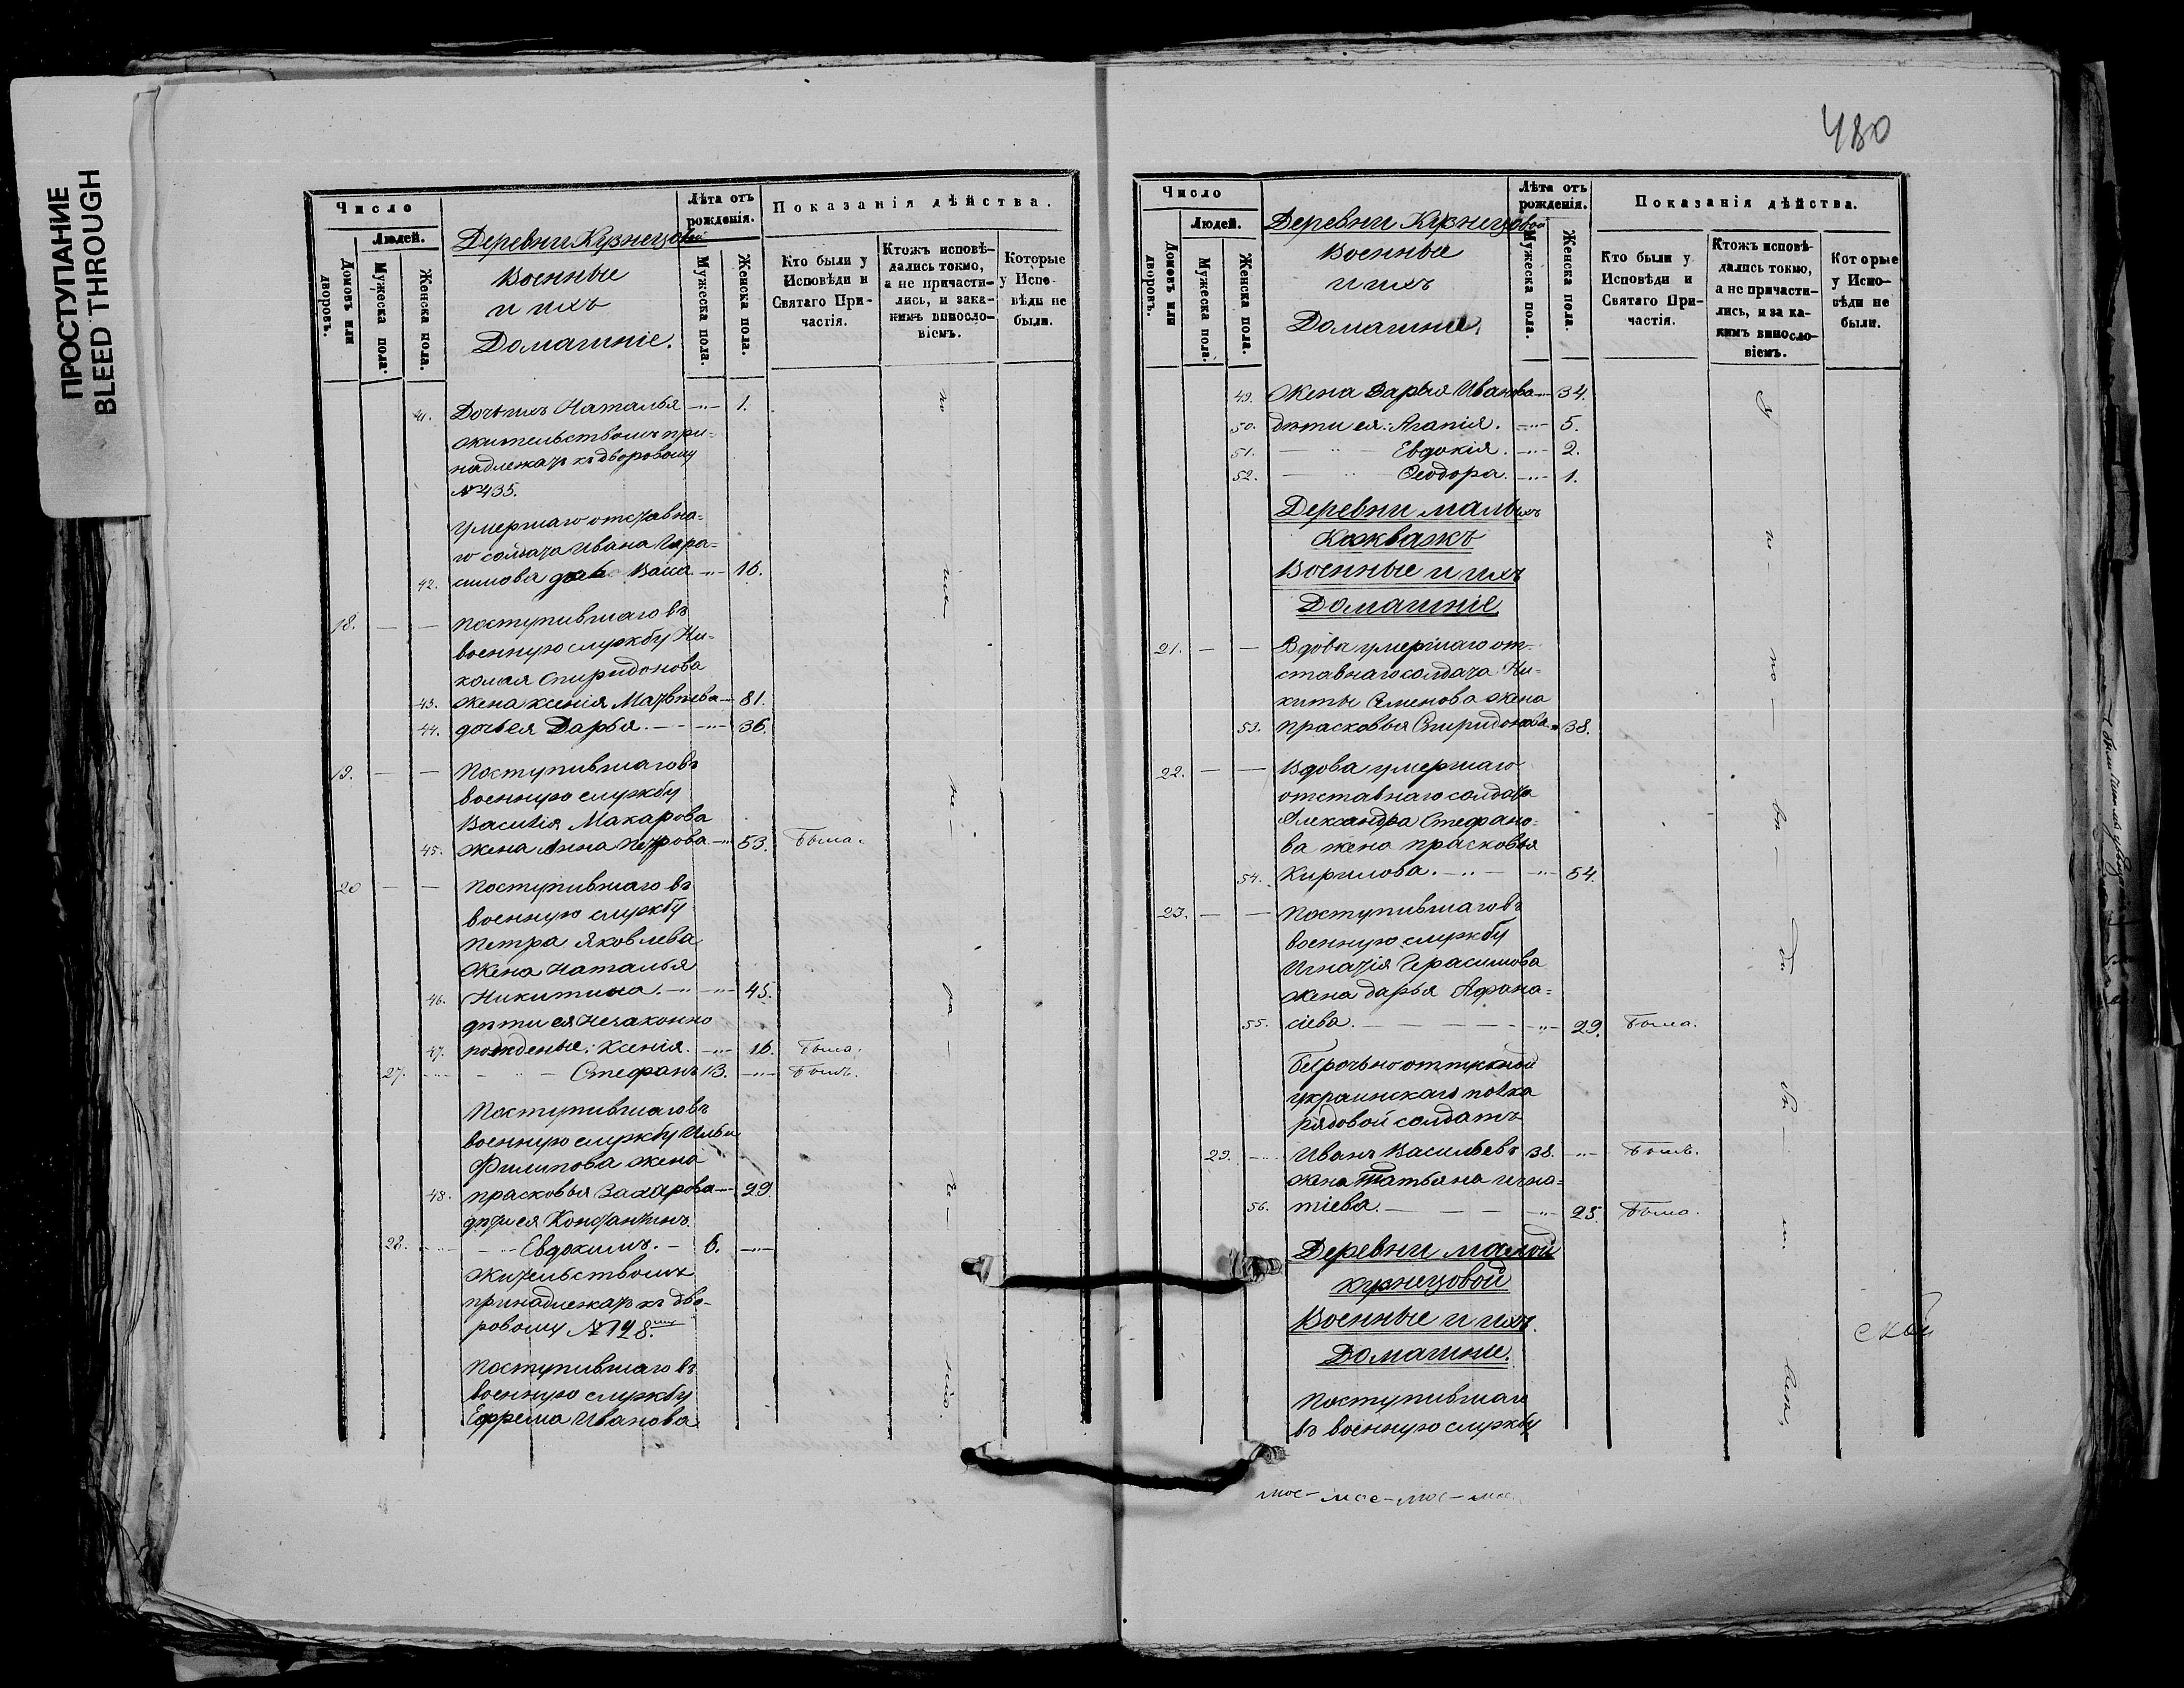 ПРОСТУПАНИЕ
BLEED THROUGH
Число
Людей.
Домовъ или дворовъ.
Мужеска пола.
Женска пола.
Деревни Кузнецовой
Военные
и ихъ
Домашніе.
Лѣта отъ рожденія.
Мужеска пола.
Женска пола.
Показанія дѣйства.
Кто были у Исповѣди и Святаго Причастія.
Ктожъ исповѣдались токмо, а не причастились, и за какимъ винословіемъ.
Которые у Исповѣди не были.
41. Дочь ихъ Наталья —"— 1.
жительствомъ при=
надлежатъ къ дворовому
№ 435.
Умершаго отставна=
го солдата Ивана Гера=
42. симова дочь Васса —"— 16.
18. — — Поступившаго въ
военную службу Ни-
колая Спиридонова
43. жена Ксенія Матвѣева —"— 81.
44. дочь ея Дарья. — —"— 36.
19. — — Поступившаго въ
военную службу
Василія Макарова
45. жена Анна Петрова —"— 53. Была.
20 — — Поступившаго въ
военную службу
Петра Яковлева
жена Наталья
46. Никитина. —"— —"— 45.
дѣти ея незаконно
47. рожденые: Ксенія. —"— 16. Была.
27. —"— — " — Стефанъ 13. —"— Былъ.
Поступившаго въ
военную службу Ильи
Филипова жена
48. Прасковья Захарова —"— 29.
дѣти ея Константинъ
28. —"— —"— Евдокимъ. — 6. —"—
Жительствомъ
принадлежатъ къ дво-
ровому № 128.
Поступившаго въ
военную службу
Ефрема Иванова
480
Число
Людей.
Домовъ или дворовъ.
Мужеска пола.
Женска пола.
Деревни Кузнецовой
Военные
и ихъ
Домашніе
Лѣта отъ рожденія.
Мужеска пола.
Женска пола.
Показанія дѣйства.
Кто были у Исповѣди и Святаго Причастія.
Ктожъ исповѣдались токмо, а не причастились, и за какимъ винословіемъ.
Которые у Исповѣди не были.
49. Жена Дарья Иванова — 34.
50. дѣти ея: Агапія. —"— 5.
51. — " — Евдокія. —"— 2.
52. — " — Ѳеодора. —"— 1.
Деревни малыхъ
Кожважъ
Военные и ихъ
Домашніе
21. — — Вдова умершаго от-
ставнаго солдата Ни-
киты Семенова жена
53. Прасковья Спиридонова " 38.
22. — — Вдова умершаго
отставнаго солдата
Александра Стефано=
ва жена Прасковья
54. Кирилова. —"— —"— 54.
23. — — Поступившаго въ
военную службу
Игнатія Герасимова
жена Дарья Афана=
55. сіева. — — — —"— 29. Была.
украинскаго полка
рядовой солдатъ
29. —"— Иванъ Васильевъ 38. —"— Былъ.
жена Татьяна Игна=
56. тіева. — — — —"— 25. Была.
Деревни малой
Кузнецовой
Военные и ихъ
Домашніе.
Поступившаго
въ военную службу